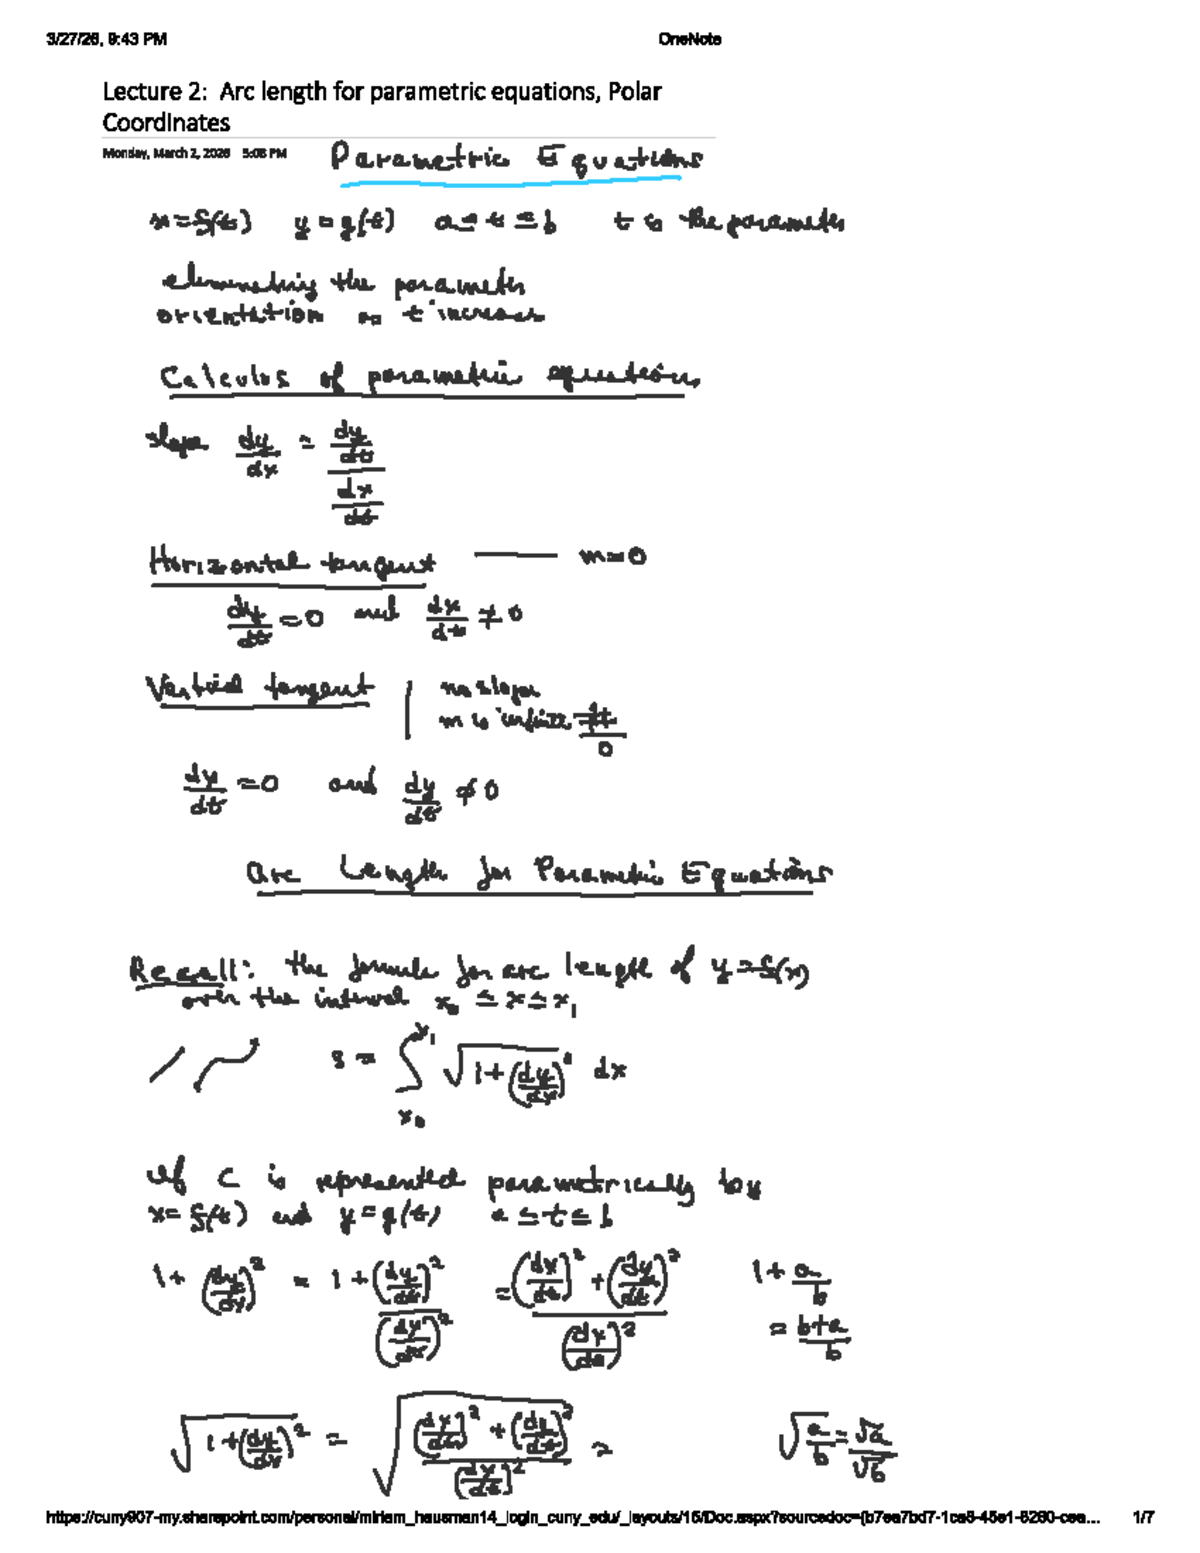 3/27/26, 9:43 PM OneNote
Lecture 2: Arc length for parametric equations, Polar
Coordinates
Monday, March 2, 2026 5:08 PM
Parametric Equations
x=f(t) y=g(t) a≤t≤b t is the parameter
eliminating the parameter
orientation as t increases
Calculus of parametric equations
slope dy/dx = (dy/dt)/(dx/dt)
Horizontal tangent —— m=0
dy/dt=0 and dx/dt≠0
Vertical tangent | no slope
m is infinite #/0
dx/dt=0 and dy/dt≠0
Arc Length for Parametric Equations
Recall: the formula for arc length of y=f(x)
over the interval x₀≤x≤x₁
s = ∫_{x₀}^{x₁} √(1+(dy/dx)²) dx
If C is represented parametrically by
x=f(t) and y=g(t) a≤t≤b
1+(dy/dx)² = 1+(dy/dt)²/(dx/dt)² = ((dx/dt)²+(dy/dt)²)/(dx/dt)² 1+a/b
= (b+a)/b
√(1+(dy/dx)²) = √(((dx/dt)²+(dy/dt)²)/(dx/dt)²) = √(a/b)=√a/√b
https://cuny907-my.sharepoint.com/personal/miriam_hausman14_login_cuny_edu/_layouts/15/Doc.aspx?sourcedoc={b7ea7bd7-1ca8-45e1-8260-cea... 1/7